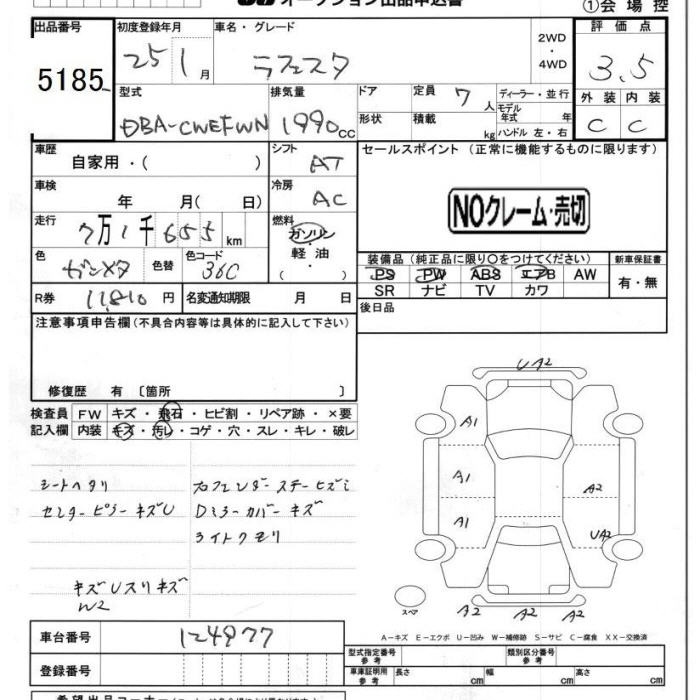 オークション出品申込書
①会場控
出品番号 初度登録年月 車名・グレード 2WD・4WD 評価点
5185 25 1月 ラフェスタ 3.5
型式 排気量 ドア 定員 7人 ディーラー・並行 外装 内装
DBA-CWEFWN 1990cc 形状 積載 kg モデル年式 年 ハンドル 左・右 C C
車歴 自家用・( ) シフト AT セールスポイント (正常に機能するものに限ります)
車検 年 月( 日) 冷房 AC
NOクレーム・売切
走行 7万1千655km 燃料 ガソリン・軽油・( )
色 ガンメタ 色替 色コード 36C
装備品(純正品に限り○をつけてください) 新車保証書
PS PW ABS エアB AW 有・無
SR ナビ TV カワ
R券 11,810円 名変通知期限 月 日 後日品
注意事項申告欄(不具合内容等は具体的に記入して下さい)
修復歴 有 〔箇所 〕
検査員 FW キズ・飛石・ヒビ割・リペア跡・×要
記入欄 内装 キズ・汚レ・コゲ・穴・スレ・キレ・破レ
シートヘタリ
センターピラーキズU
Dミラーカバーキズ
ライトクモリ
キズUスリキズ
W2
UA2
A1
A1
A2
A1
UA2
スペア
A2 A2 A2
A-キズ E-エクボ U-凹み W-補修跡 S-サビ C-腐食 XX-交換済
車台番号 124977
登録番号
型式指定番号 参考 類別区分番号 参考
車庫証明用 参考 長さ cm 幅 cm 高さ cm